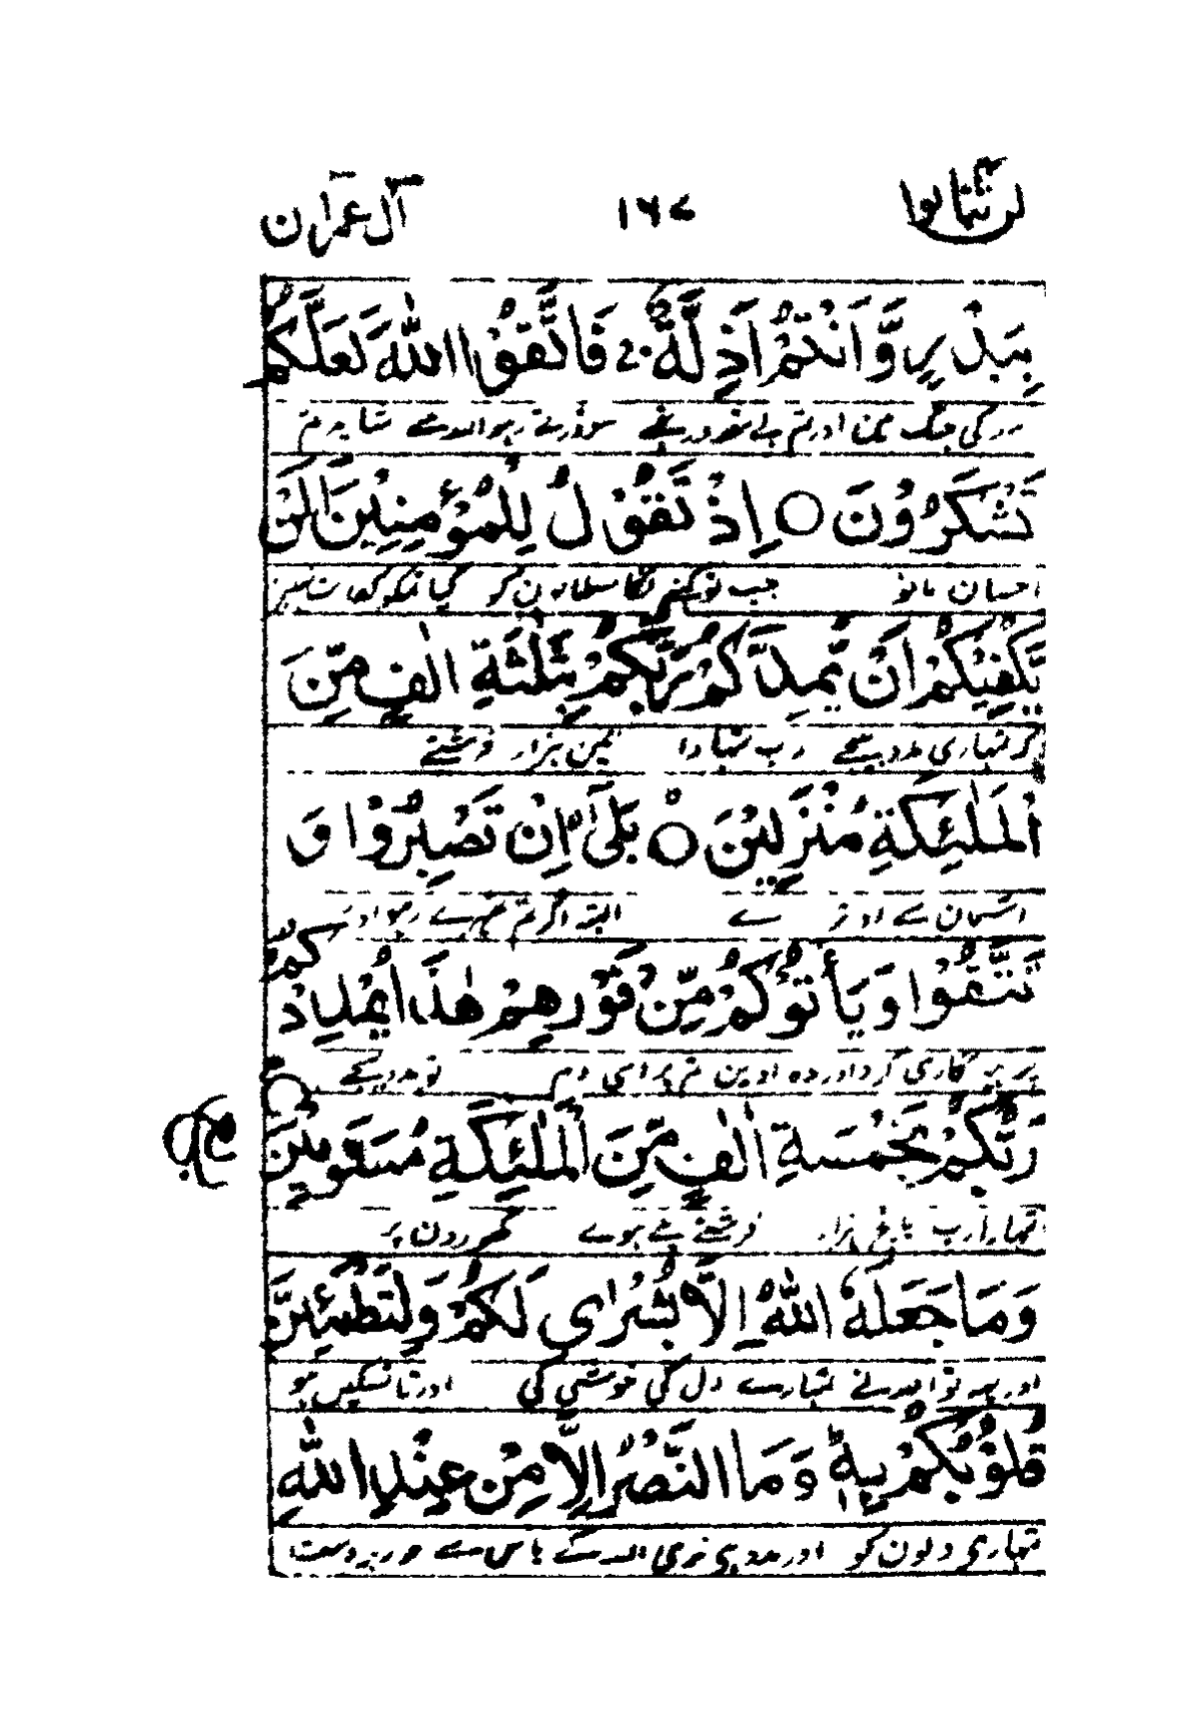 لن تنالوا ١٦٧ آل عمران
بِبَدْرٍ وَّاَنْتُمْ اَذِلَّةٌ فَاتَّقُوا اللّٰهَ لَعَلَّكُمْ
کی جنگ مین اور تم بے مقدور تھے سو ڈرتے رہو اللہ سے شاید تم
تَشْكُرُوْنَ ○ اِذْ تَقُوْلُ لِلْمُؤْمِنِيْنَ اَلَنْ
احسان مانو جب تو کہنے لگا مسلمانون کو کیا تمکو کفایت نہین
يَّكْفِيَكُمْ اَنْ يُّمِدَّكُمْ رَبُّكُمْ بِثَلٰثَةِ اٰلٰفٍ مِّنَ
کہ تمہاری مدد بھیجے رب تمہارا تین ہزار فرشتے
الْمَلٰٓئِكَةِ مُنْزَلِيْنَ ○ بَلٰٓى اِنْ تَصْبِرُوْا وَ
آسمان سے اوترے البتہ اگر تم ٹھہرے رہو اور
تَتَّقُوْا وَيَاْتُوْكُمْ مِّنْ فَوْرِهِمْ هٰذَا يُمْدِدْكُمْ
پرہیزگاری کرو اور وہ آوین تم پر اسی دم تو مدد بھیجے
رَبُّكُمْ بِخَمْسَةِ اٰلٰفٍ مِّنَ الْمَلٰٓئِكَةِ مُسَوِّمِيْنَ ○
تمہارا رب پانچ ہزار فرشتے پلے ہوے گھوڑون پر
وَمَا جَعَلَهُ اللّٰهُ اِلَّا بُشْرٰى لَكُمْ وَلِتَطْمَئِنَّ
اور یہہ تو اللہ نے تمہارے دل کی خوشی کی اور تا تسکین ہو
قُلُوْبُكُمْ بِهٖ وَمَا النَّصْرُ اِلَّا مِنْ عِنْدِ اللّٰهِ
تمہاری دلون کو اور مدد ہی نری اللہ کے پاس سے جو زبردست